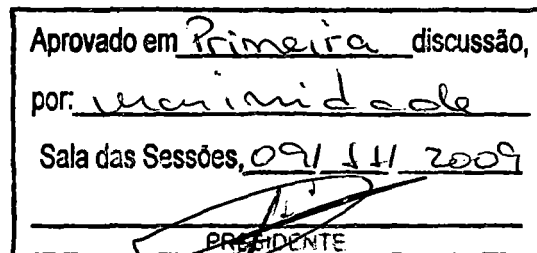 Aprovado em Primeira discussão,
por: unanimidade
Sala das Sessões, 09/ 11/ 2009
PRESIDENTE